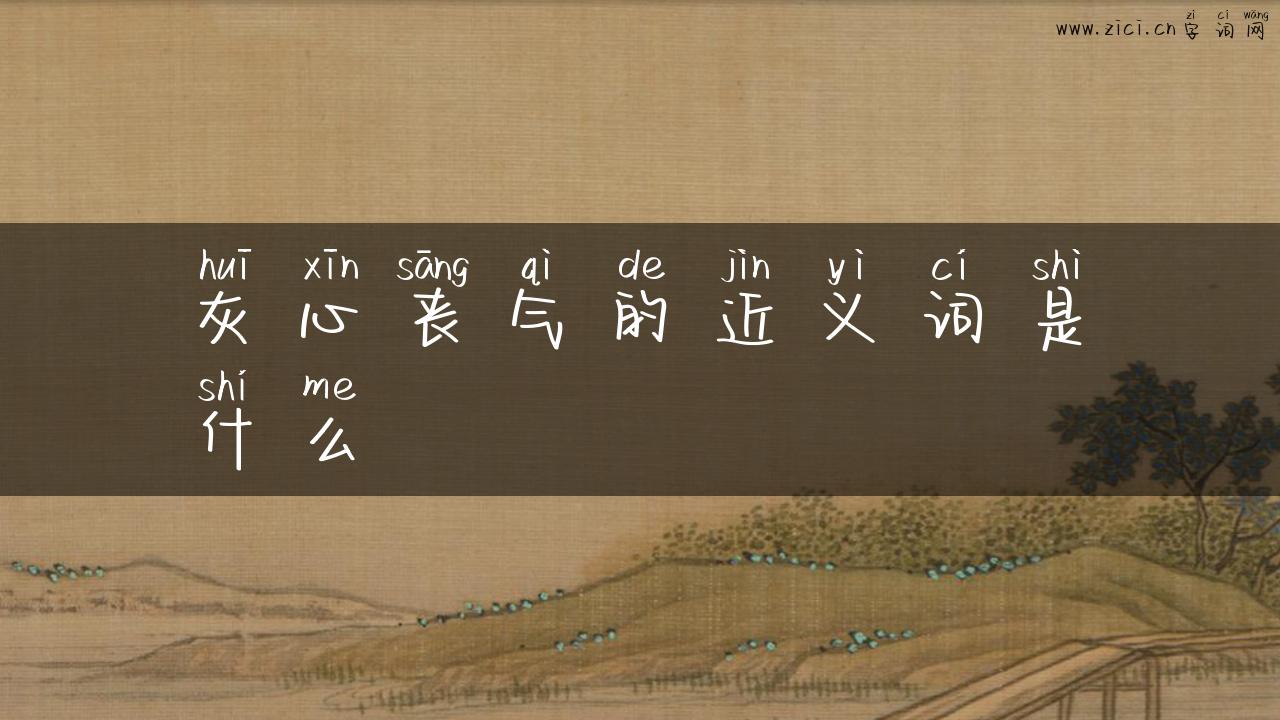 zì cí wǎng
www.zici.cn字词网
huī xīn sāng qì de jìn yì cí shì
灰心丧气的近义词是
shí me
什么